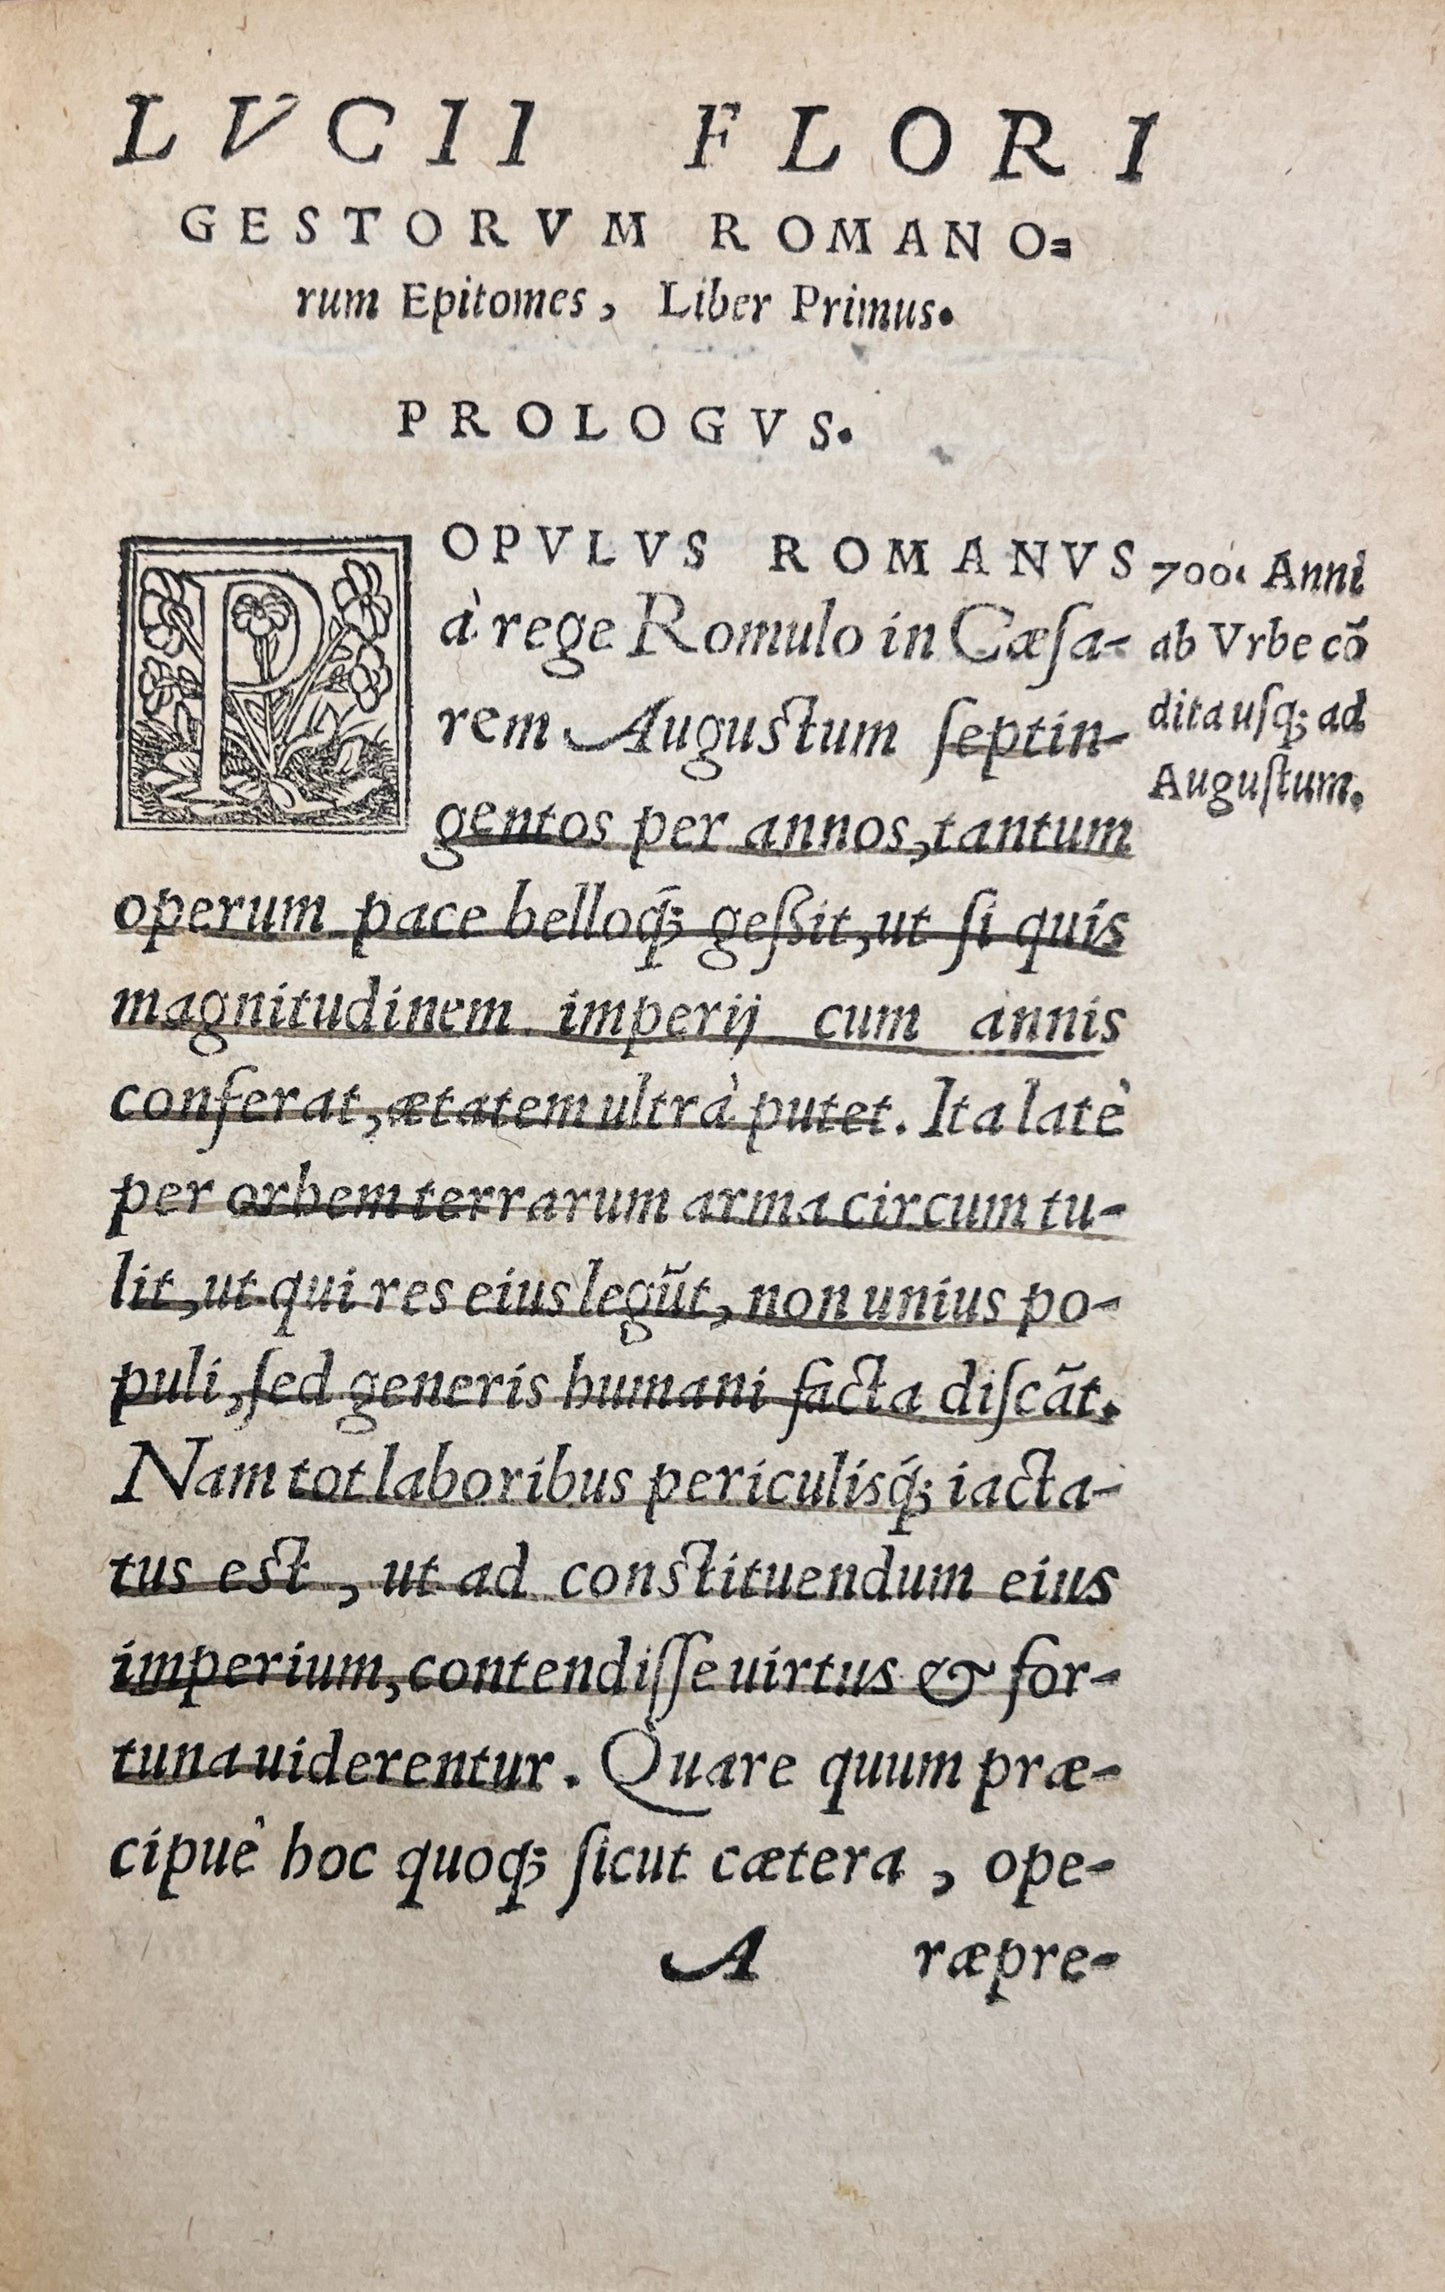 LVCII FLORI
GESTORVM ROMANO=
rum Epitomes, Liber Primus.
PROLOGVS.
POPVLVS ROMANVS
à rege Romulo in Cæſa-
rem Auguſtum ſeptin-
gentos per annos, tantum
operum pace belloq́; geßit, ut ſi quis
magnitudinem imperij cum annis
conferat, ætatem ultrà putet. Ita latè
per orbem terrarum arma circum tu-
lit, ut qui res eius legũt, non unius po-
puli, ſed generis humani facta diſcãt.
Nam tot laboribus periculisq́; iacta-
tus eſt, ut ad conſtituendum eius
imperium, contendiſſe uirtus & for-
tuna uiderentur. Quare quum præ-
cipuè hoc quoq; ſicut cætera, ope-
A ræpre-
700. Anni
ab Vrbe cõ
dita uſq; ad
Auguſtum.